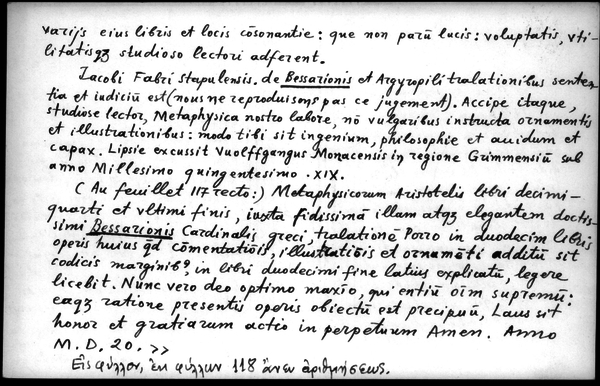 varijs eius libris et locis cōsonantie: que non parū lucis: voluptatis, vti-
litatisqȝ studioso lectori adferent.
Iacobi Fabri stapulensis. de Bessarionis et Argyropili tralationibus senten-
tia et iudiciū est (nous ne reproduisons pas ce jugement). Accipe itaque,
studiose lector, Metaphysica nostro labore, nō vulgaribus instructa ornamentis
et illustrationibus: modo tibi sit ingenium, philosophie et auidum et
capax. Lipsie excussit Vuolffgangus Monacensis in regione Grimmensiū sub
anno Millesimo quingentesimo .XIX.
(Au feuillet 117 recto:) Metaphysicorum Aristotelis libri decimi-
quarti et vltimi finis, iuxta fidissimā illam atqȝ elegantem doctis-
simi Bessarionis Cardinalis greci, tralationē Porro in duodecim libris
operis huius qd cōmentatiōis, illustratiōis et ornamēti additū sit
codicis marginibꝰ, in libri duodecimi fine latius explicatū, legere
licebit. Nūnc vero deo optimo maxīo, qui entiū oīm supremū:
eaqȝ ratione presentis operis obiectū est precipuū, Laus sit
honor et gratiarum actio in perpetuum Amen. Anno
M.D. 20. >>
Εἰς φύλλον, ἐκ φύλλων 118 ἄνευ ἀριθμήσεως.